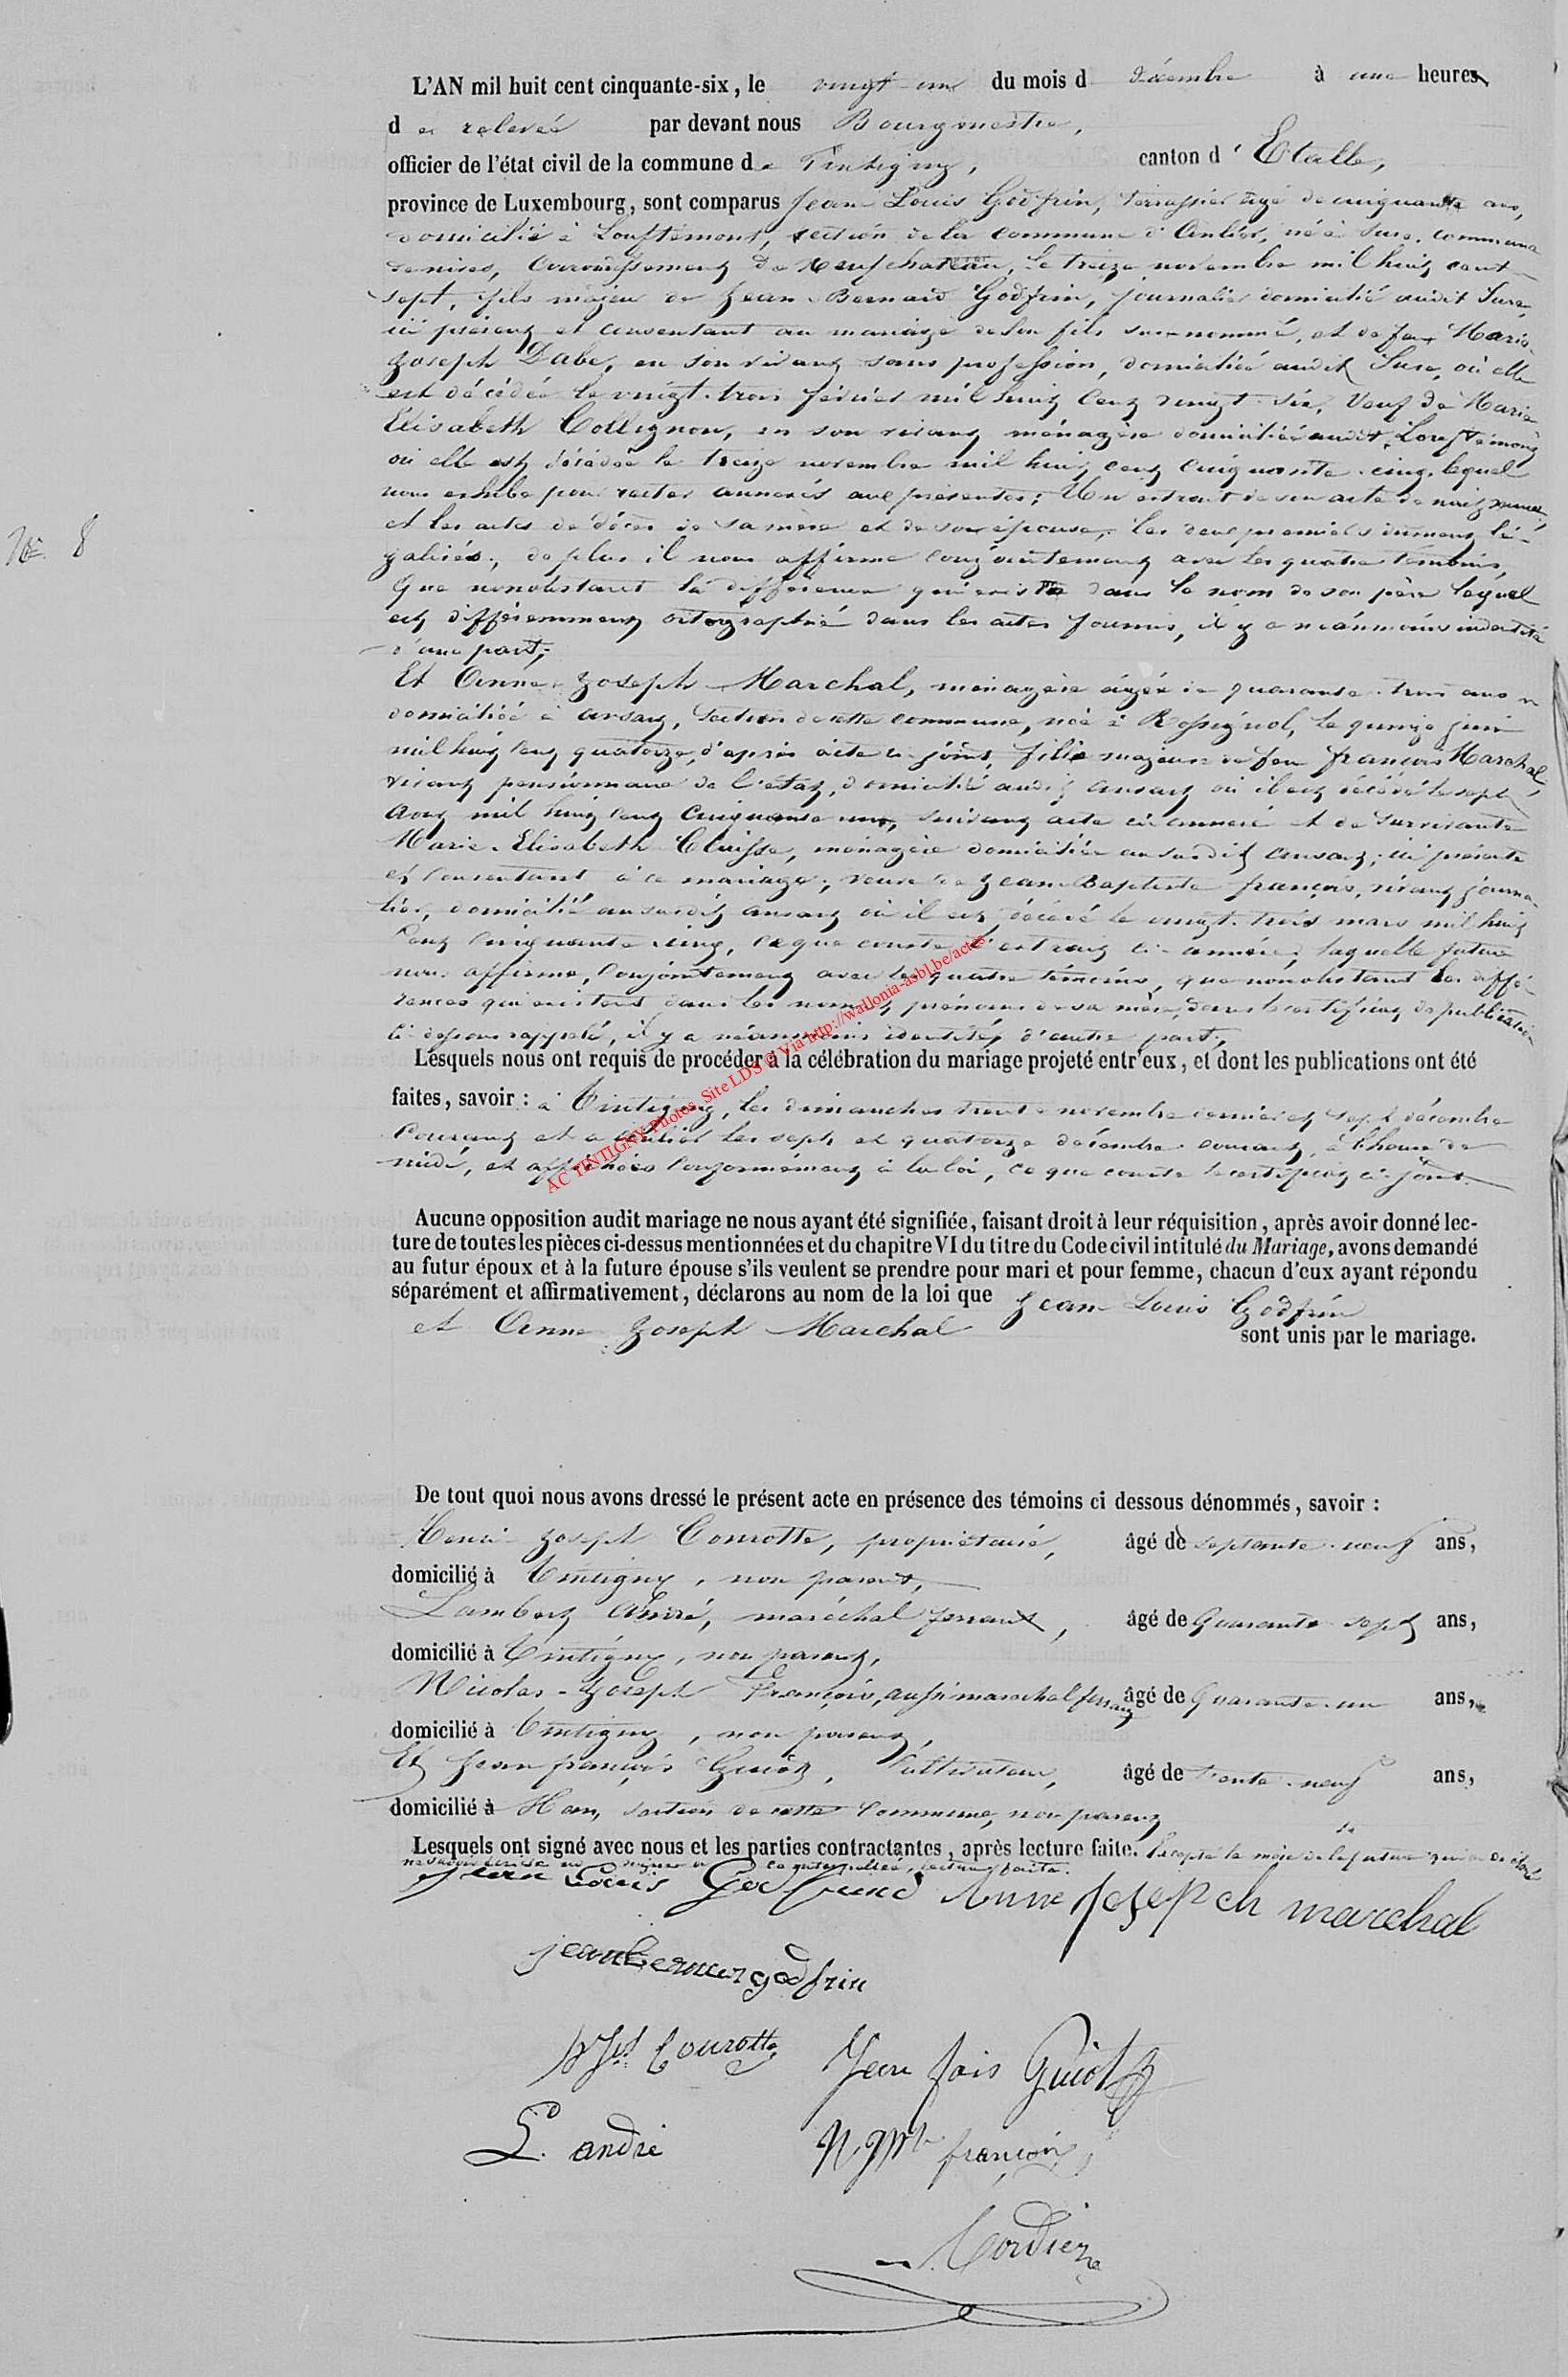 L'AN mil huit cent cinquante-six, le vingt-un du mois d décembre à une heures
de relevée par devant nous Bourgmestre,
officier de l'état civil de la commune de Tintigny, canton d'Etalle,
province de Luxembourg, sont comparus Jean Louis Godfrin, terrassier âgé de cinquante ans,
domicilié à Louftémont, section de la commune d'Anlier, né à Sure, commune
de nives, arrondissement de Neufchateau, le treize novembre mil huit cent
sept, fils majeur de Jean Bernard Godfrin, journalier domicilié audit Sure,
ici présent et consentant au mariage de son fils susnommé, et de feue Marie
Joseph Dabe, en son vivant sans profession, domiciliée audit Sure, où elle
est décédée le vingt-trois février mil huit cent vingt-six, Veuf de Marie
Elisabeth Collignon, en son vivant ménagère domiciliée audit Louftémont
où elle est décédée le treize novembre mil huit cent cinquante-cinq, lequel
nous exhibe pour rester annexés aux présentes; Un extrait de son acte de naissance
et les actes de décès de sa mère et de son épouse, les deux premiers dûment lé-
galisés, de plus il nous affirme conjointement avec les quatre témoins,
Que nonobstant la différence qui existe dans le nom de son père lequel
est différemment ortographié dans les actes fournis, il y a néanmoins identité
d'une part;
N° 8
Et Anne Joseph Marchal, ménagère âgée de quarante-trois ans
domiciliée à ansart, Section de cette commune, née à Rossignol, le quinze juin
mil huit cent quatorze, d'après acte ci-joint, fille majeure de feu françois Marchal,
vivant pensionnaire de l'etat, domicilié audit ansart où il est décédé le sept
Aout mil huit cent cinquante un, suivant acte ci-annexé et de survivante
Marie-Elisabeth Claisse, ménagère domiciliée au susdit ansart; ici présente
et consentant à ce mariage; veuve de Jean Baptiste françois, vivant journa-
lier, domicilié au susdit ansart où il est décédé le vingt-trois mars mil huit
Cent cinquante cinq, ce que conste l'extrait ci-annexé; laquelle future
nous affirme, conjointement avec les quatre témoins, que nonobstant les diffé-
rences qui existent dans les noms et prénoms de sa mère, dans le certificat de publication
ci-dessous rappelé, il y a néanmoins identité, d'autre part,
Lesquels nous ont requis de procéder à la célébration du mariage projeté entr'eux, et dont les publications ont été
faites, savoir : à Tintigny, les dimanches trente novembre dernier et sept décembre
courant et à anlier les sept et quatorze décembre courant, à l'heure de
midi, et affichées conformément à la loi, ce que conste le certificat ci-joint.
Aucune opposition audit mariage ne nous ayant été signifiée, faisant droit à leur réquisition, après avoir donné lec-
ture de toutes les pièces ci-dessus mentionnées et du chapitre VI du titre du Code civil intitulé du Mariage, avons demandé
au futur époux et à la future épouse s'ils veulent se prendre pour mari et pour femme, chacun d'eux ayant répondu
séparément et affirmativement, déclarons au nom de la loi que Jean Louis Godfrin
et Anne Joseph Marchal sont unis par le mariage.
De tout quoi nous avons dressé le présent acte en présence des témoins ci dessous dénommés, savoir :
Henri Joseph Courotte, propriétaire, âgé de septante-neuf ans,
domicilié à Tintigny, non parent,
Lambert André, maréchal ferrant, âgé de Quarante-sept ans,
domicilié à Tintigny, non parent,
Nicolas-Joseph François, aussi marechal ferrant âgé de Quarante-un ans,
domicilié à Tintigny, non parent,
Et Jean françois Guiot, cultivateur, âgé de trente-neuf ans,
domicilié à Han, section de cette commune, non parent
Lesquels ont signé avec nous et les parties contractantes, après lecture faite. Excepté la mère de la future qui a déclaré
ne savoir écrire ni signer de ce interpellée, lecture faite.
Jean Louis Godfrind Anne joseph marchal
jean bernar godfrin
hJph Courotte Jean fois Guiot
L. andré françois
Cordier
AC TINTIGNY Photos, Site LDS @ Via http://wallonia-asbl.be/actes